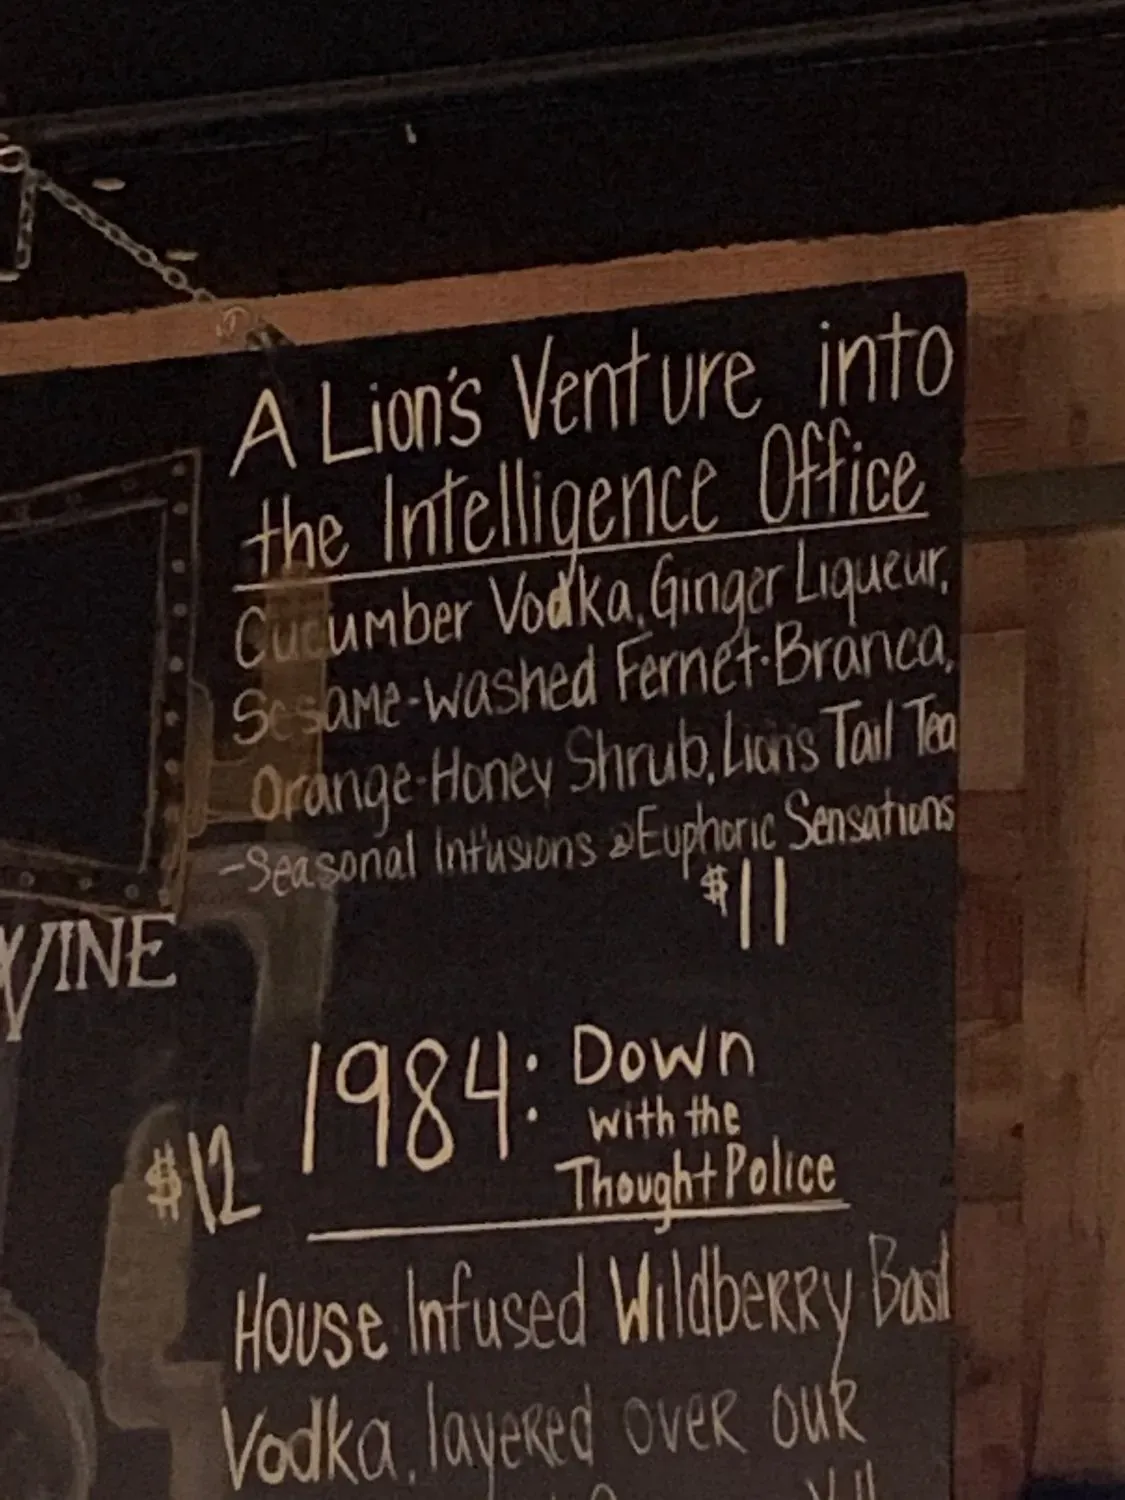 A Lion's Venture into
the Intelligence Office
Cucumber Vodka, Ginger Liqueur,
Sesame-washed Fernet-Branca,
Orange-Honey Shrub, Lion's Tail Tea
-Seasonal Infusions & Euphoric Sensations
$11
WINE
1984: Down
with the
Thought Police
$12
House Infused Wildberry Basil
Vodka, layered over our